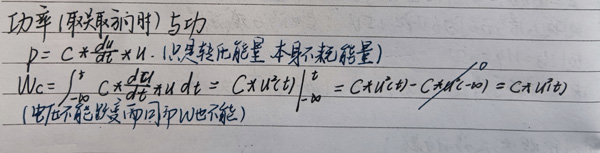 功率(取关联方向时)与功
p = C * du/dt * u. (只是转化能量 本身不耗能量)
Wc = ∫_{-∞}^{t} C * du/dt * u dt = C * u²(t) |_{-∞}^{t} = C * u²(t) - C * u²(-∞) = C * u²(t)
(电压不能 变 而同 W也不能)